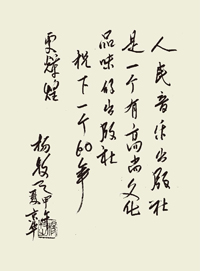 人民音乐出版社
是一个有高尚文化
品味的出版社
祝下一个60年
更灿烂
甲午夏